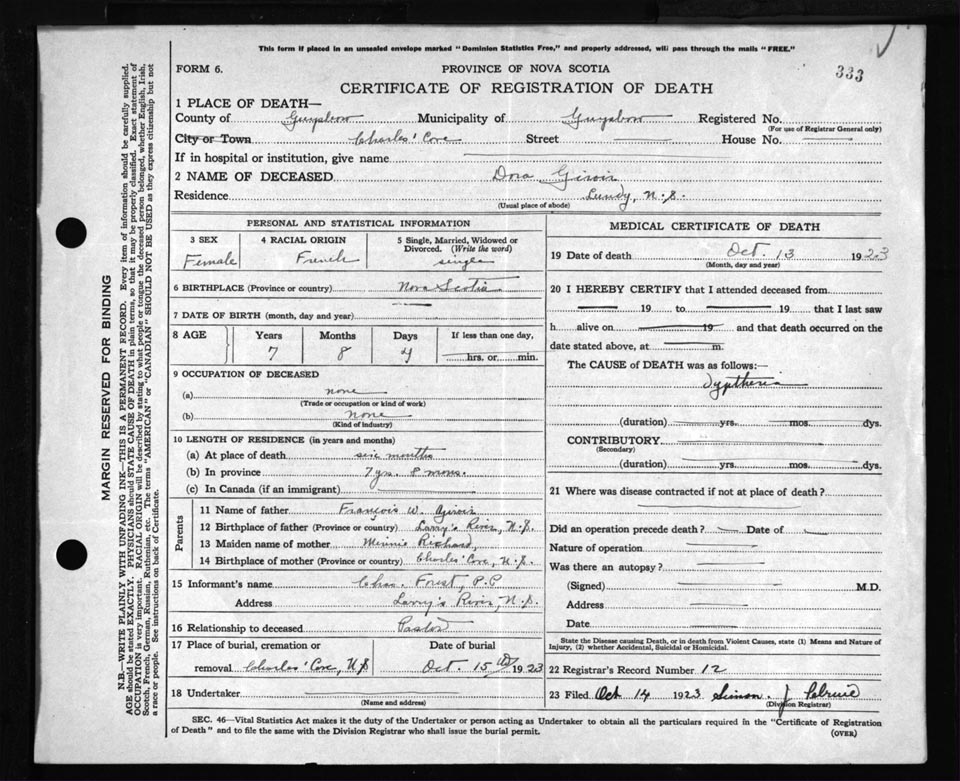 This form if placed in an unsealed envelope marked "Dominion Statistics Free," and properly addressed, will pass through the mails "FREE."
333
FORM 6.
PROVINCE OF NOVA SCOTIA
CERTIFICATE OF REGISTRATION OF DEATH
1 PLACE OF DEATH—
County of Guysboro Municipality of Guysboro Registered No.
(For use of Registrar General only)
City or Town Charles' Cove Street House No.
If in hospital or institution, give name
2 NAME OF DECEASED Dora Girois
Residence Lundy, N.S.
(Usual place of abode)
PERSONAL AND STATISTICAL INFORMATION
3 SEX
Female
4 RACIAL ORIGIN
French
5 Single, Married, Widowed or Divorced. (Write the word)
single
6 BIRTHPLACE (Province or country) Nova Scotia
7 DATE OF BIRTH (month, day and year)
8 AGE Years Months Days If less than one day,
7 8 4 hrs. or min.
9 OCCUPATION OF DECEASED
(a) none
(Trade or occupation or kind of work)
(b) none
(Kind of industry)
10 LENGTH OF RESIDENCE (in years and months)
(a) At place of death six months
(b) In province 7 yrs. 8 mons.
(c) In Canada (if an immigrant)
Parents
11 Name of father François W. Girois
12 Birthplace of father (Province or country) Larry's River, N.S.
13 Maiden name of mother Minnie Richard,
14 Birthplace of mother (Province or country) Charles' Cove, N.S.
15 Informant's name Chas. Forest, P.P
Address Larry's River, N.S.
16 Relationship to deceased Pastor
17 Place of burial, cremation or removal Charles' Cove, N.S
Date of burial
Oct. 15th 1923
18 Undertaker
(Name and address)
MEDICAL CERTIFICATE OF DEATH
19 Date of death Oct. 13 1923
(Month, day and year)
20 I HEREBY CERTIFY that I attended deceased from
19 to 19 that I last saw
h alive on 19 and that death occurred on the
date stated above, at m.
The CAUSE of DEATH was as follows:—
Dyptheria
(duration) yrs. mos. dys.
CONTRIBUTORY
(Secondary)
(duration) yrs. mos. dys.
21 Where was disease contracted if not at place of death?
Did an operation precede death? Date of
Nature of operation
Was there an autopsy?
(Signed) M.D.
Address
Date
State the Disease causing Death, or in death from Violent Causes, state (1) Means and Nature of
Injury, (2) whether Accidental, Suicidal or Homicidal.
22 Registrar's Record Number 12
23 Filed Oct 14 1923 Simon. J
(Division Registrar)
SEC. 46—Vital Statistics Act makes it the duty of the Undertaker or person acting as Undertaker to obtain all the particulars required in the "Certificate of Registration
of Death" and to file the same with the Division Registrar who shall issue the burial permit.
(OVER)
MARGIN RESERVED FOR BINDING
N.B.—WRITE PLAINLY WITH UNFADING INK—THIS IS A PERMANENT RECORD. Every item of information should be carefully supplied.
AGE should be stated EXACTLY. PHYSICIANS should STATE CAUSE OF DEATH in plain terms, so that it may be properly classified. Exact statement of
OCCUPATION is very important. RACIAL ORIGIN will be described by stating to what people or tongue the deceased person belonged, whether English, Irish,
Scotch, French, German, Russian, Ruthenian, etc. The terms "AMERICAN" or "CANADIAN" SHOULD NOT BE USED as they express citizenship but not
a race or people. See instructions on back of Certificate.